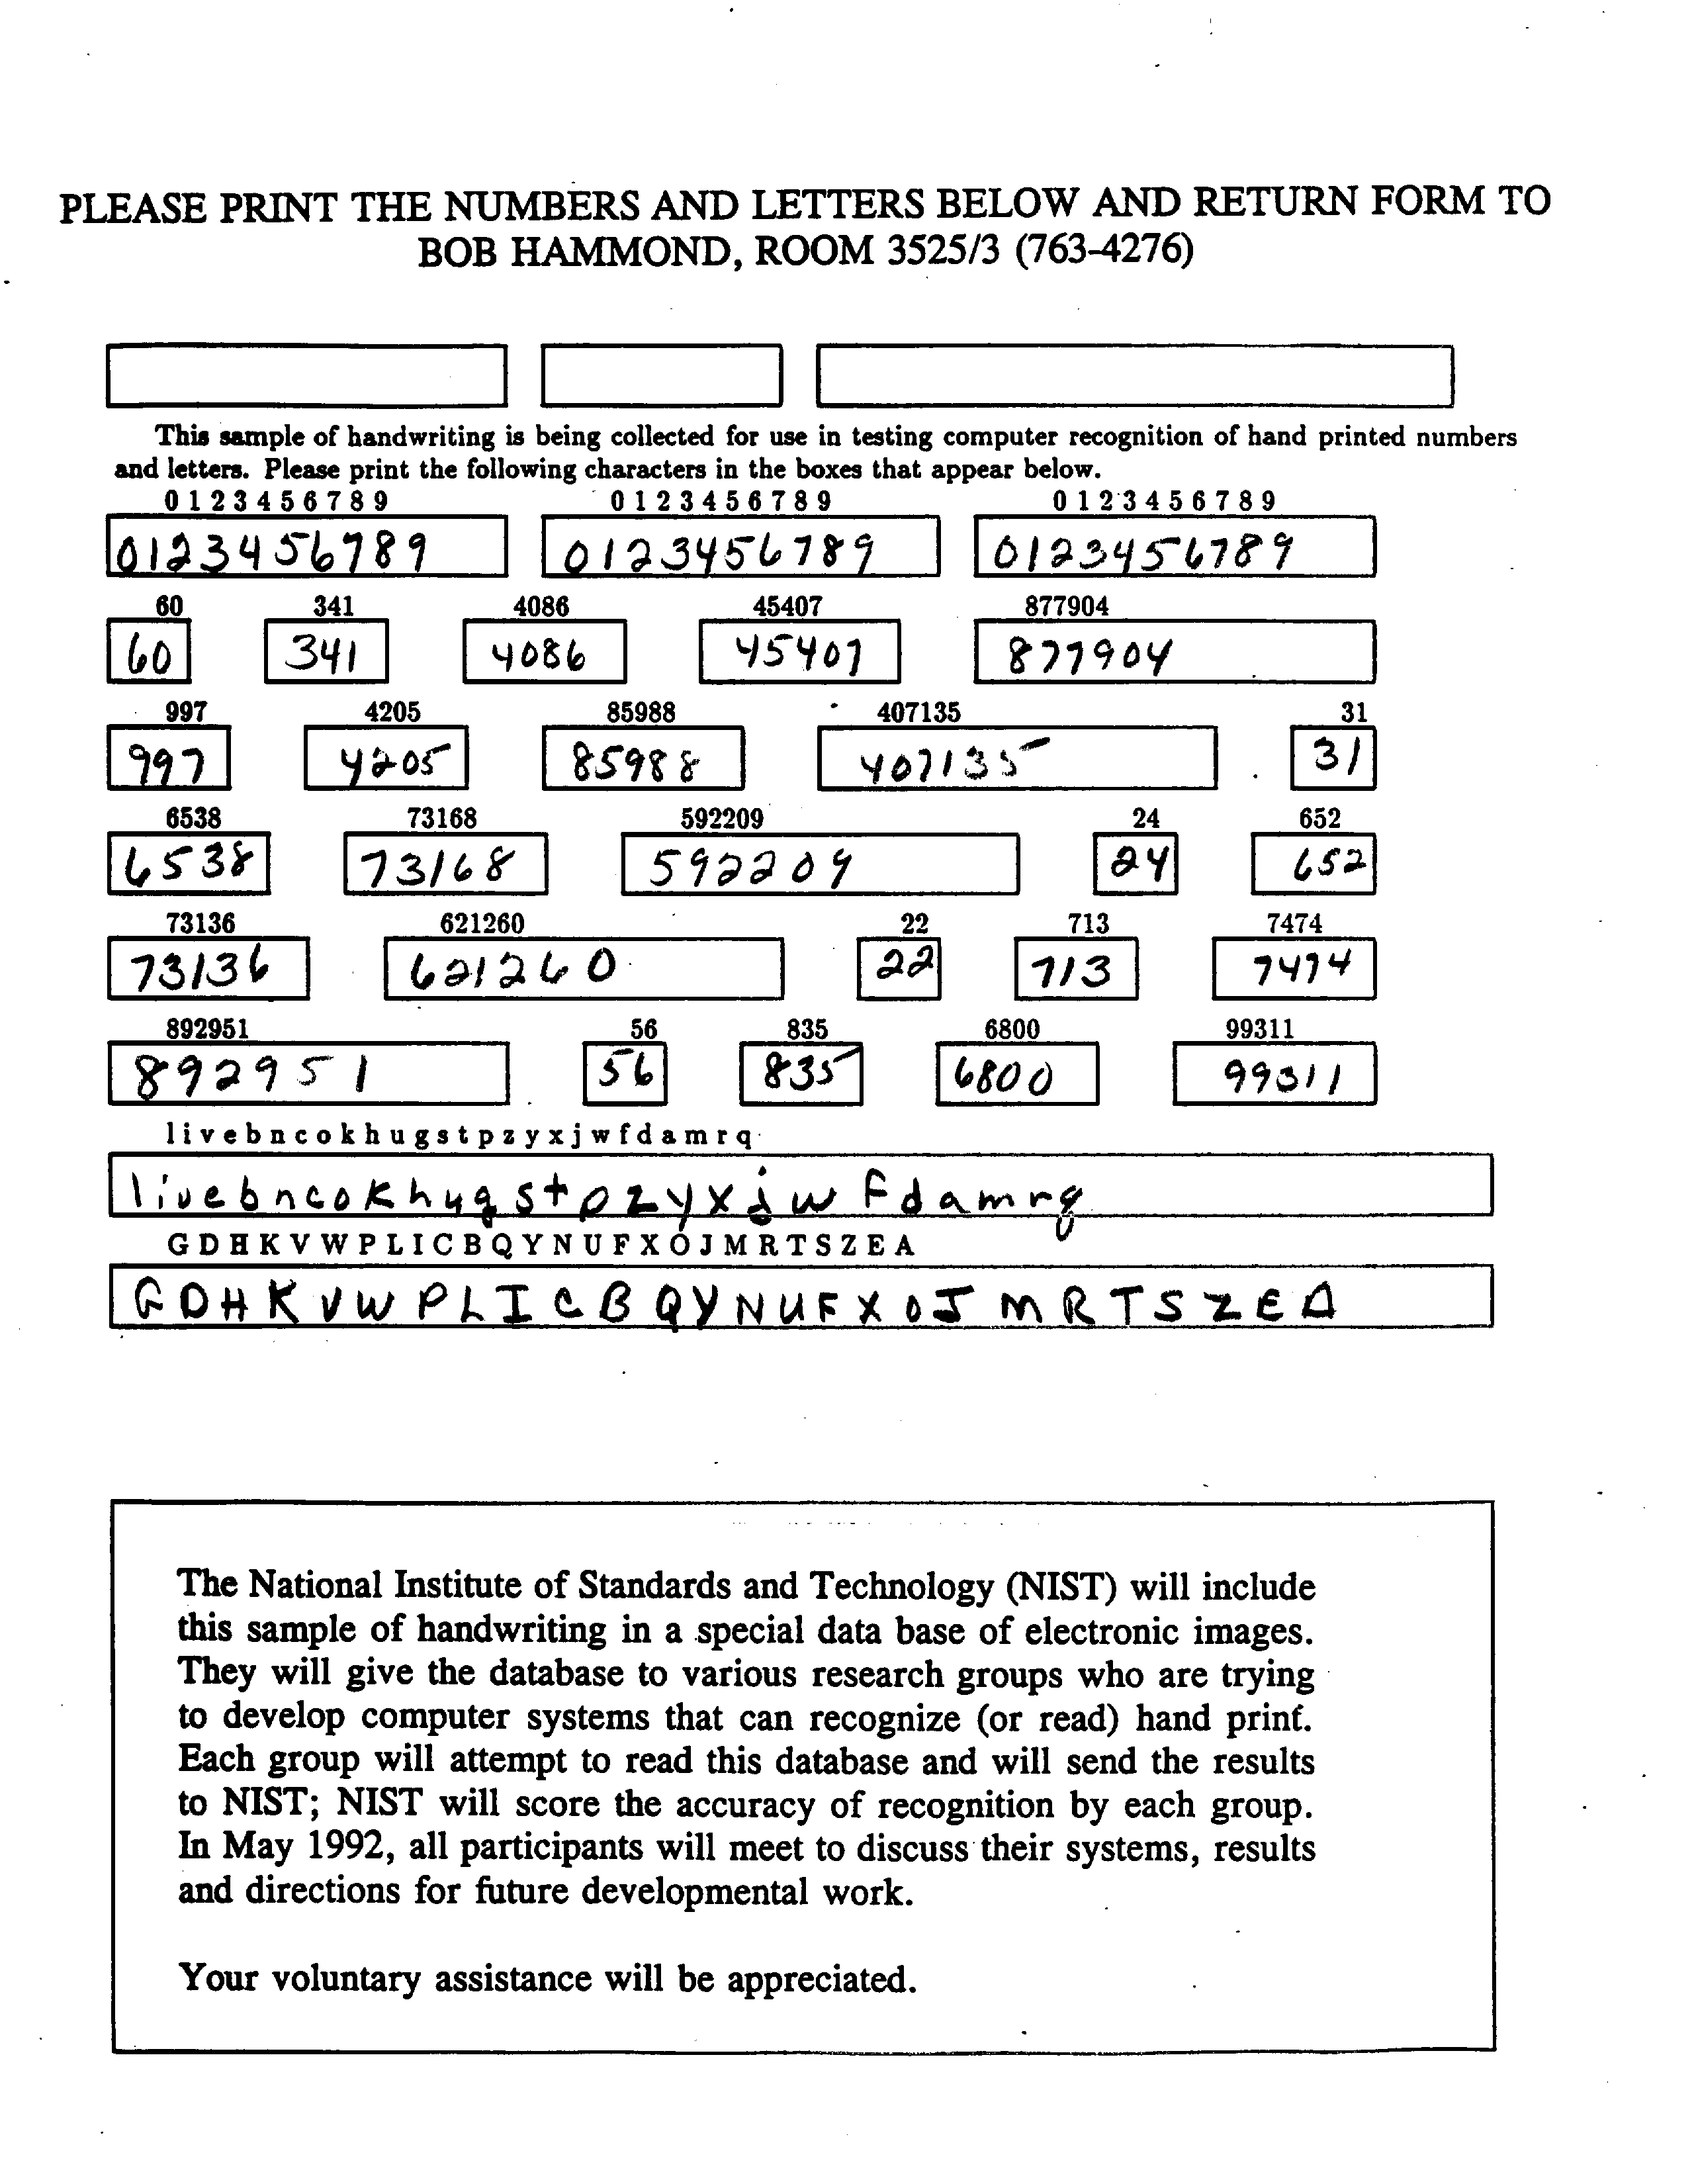 PLEASE PRINT THE NUMBERS AND LETTERS BELOW AND RETURN FORM TO
BOB HAMMOND, ROOM 3525/3 (763-4276)
This sample of handwriting is being collected for use in testing computer recognition of hand printed numbers
and letters. Please print the following characters in the boxes that appear below.
0 1 2 3 4 5 6 7 8 9 0 1 2 3 4 5 6 7 8 9 0 1 2 3 4 5 6 7 8 9
0123456789 0123456789 0123456789
60 341 4086 45407 877904
60 341 4086 45407 877904
997 4205 85988 407135 31
997 4205 85988 407135 31
6538 73168 592209 24 652
6538 73168 592209 24 652
73136 621260 22 713 7474
73136 621260 22 713 7474
892951 56 835 6800 99311
892951 56 835 6800 99311
l i v e b n c o k h u g s t p z y x j w f d a m r q
l i v e b n c o k h u g s t p z y x j w f d a m r q
G D H K V W P L I C B Q Y N U F X O J M R T S Z E A
G D H K V W P L I C B Q Y N U F X O J M R T S Z E A
The National Institute of Standards and Technology (NIST) will include
this sample of handwriting in a special data base of electronic images.
They will give the database to various research groups who are trying
to develop computer systems that can recognize (or read) hand print.
Each group will attempt to read this database and will send the results
to NIST; NIST will score the accuracy of recognition by each group.
In May 1992, all participants will meet to discuss their systems, results
and directions for future developmental work.
Your voluntary assistance will be appreciated.